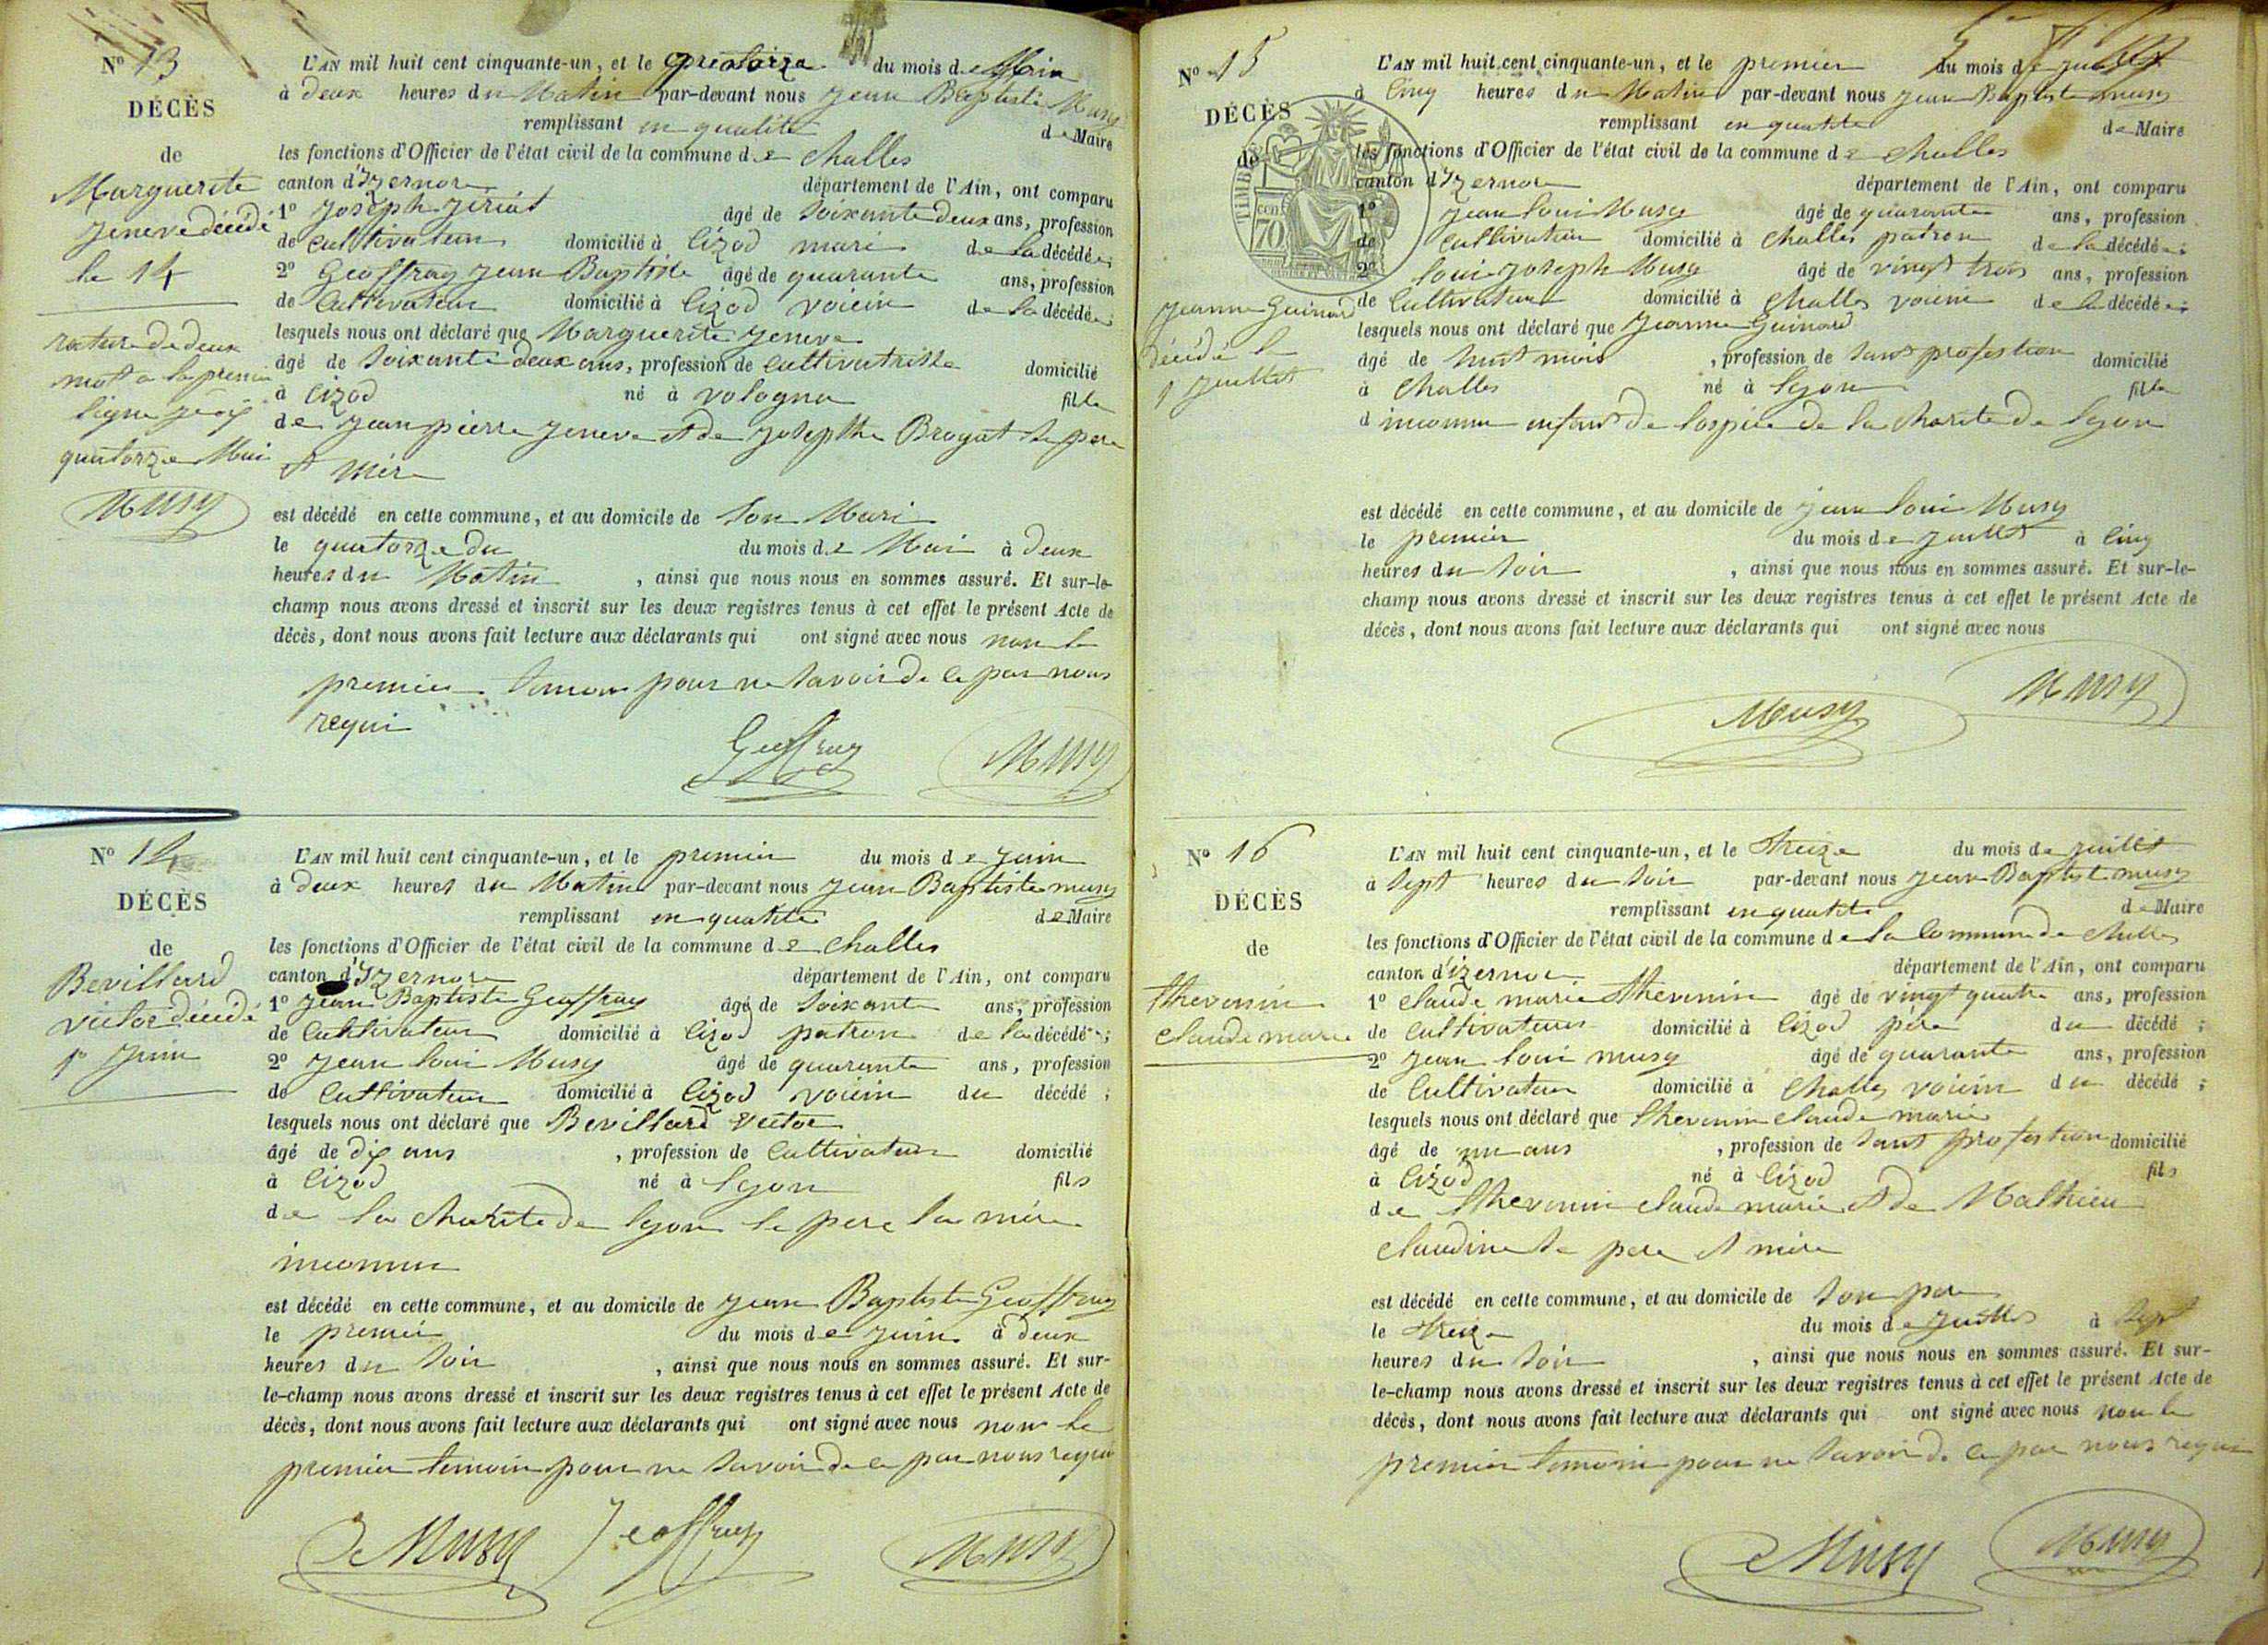 N° 13
DÉCÈS
de
Marguerite
jeneve décédé
le 14
rature de deux
mot a la premier
ligne
quatorze Mai
Musy
L'AN mil huit cent cinquante-un, et le quatorze du mois de Mai
à deux heures du Matin par-devant nous jean Baptiste Musy
remplissant en qualité de Maire
les fonctions d'Officier de l'état civil de la commune de challes
canton d'izernore département de l'Ain, ont comparu
1° joseph jeriat âgé de soixante deux ans, profession
de cultivateur domicilié à cizod mari de la décédée;
2° Geoffray jean Baptiste âgé de quarante ans, profession
de cultivateur domicilié à cizod voicin de la décédée;
lesquels nous ont déclaré que Marguerite jeneve
âgé de soixante deux ans, profession de cultivatrisse domicilié
à cizod né à vologna fille
de jean pierre jeneve et de josepthe Broyat se pere
et mère
est décédé en cette commune, et au domicile de son Mari
le quatorze du du mois de Mai à deux
heures du Matin, ainsi que nous nous en sommes assuré. Et sur-le-
champ nous avons dressé et inscrit sur les deux registres tenus à cet effet le présent Acte de
décès, dont nous avons fait lecture aux déclarants qui ont signé avec nous non le
premier temoin pour ne savoir de ce par nous
requi
Geoffray Musy
N° 14
DÉCÈS
de
Bevillard
victor décédé
1er juin
L'AN mil huit cent cinquante-un, et le premier du mois de juin
à deux heures du Matin par-devant nous jean Baptiste musy
remplissant en qualité de Maire
les fonctions d'Officier de l'état civil de la commune de challes
canton d'izernore département de l'Ain, ont comparu
1° jean Baptiste Geoffray âgé de soixante ans, profession
de cultivateur domicilié à cizod patron de la décédé;
2° jean loui Musy âgé de quarante ans, profession
de cultivateur domicilié à cizod voicin du décédé;
lesquels nous ont déclaré que Bevillard victor
âgé de dix ans, profession de cultivateur domicilié
à cizod né à lyon fils
de la charité de lyon le pere la mère
inconnu
est décédé en cette commune, et au domicile de jean Baptiste Geoffray
le premier du mois de juin à deux
heures du soir, ainsi que nous nous en sommes assuré. Et sur-
le-champ nous avons dressé et inscrit sur les deux registres tenus à cet effet le présent Acte de
décès, dont nous avons fait lecture aux déclarants qui ont signé avec nous non le
premier temoin pour ne savoir de ce par nous requi
Musy Geoffray Musy
N° 15
DÉCÈS
de
TIMBRE
70 cen.
jeanne Guinard
décédé le
1 juillet
L'AN mil huit cent cinquante-un, et le premier du mois de juillet
à cinq heures du Matin par-devant nous jean Baptiste musy
remplissant en qualité de Maire
les fonctions d'Officier de l'état civil de la commune de challes
canton d'izernore département de l'Ain, ont comparu
1° jean loui Musy âgé de quarante ans, profession
de cultivateur domicilié à challes patron de la décédée;
2° loui joseph Musy âgé de vingt trois ans, profession
de cultivateur domicilié à challes voicin de la décédée;
lesquels nous ont déclaré que jeanne Guinard
âgé de huit mois, profession de sans profestion domicilié
à challes né à lyon fille
d inconnu enfant de lospice de la charité de lyon
est décédé en cette commune, et au domicile de jean loui Musy
le premier du mois de juillet à cinq
heures du soir, ainsi que nous nous en sommes assuré. Et sur-le-
champ nous avons dressé et inscrit sur les deux registres tenus à cet effet le présent Acte de
décès, dont nous avons fait lecture aux déclarants qui ont signé avec nous
Musy Musy
N° 16
DÉCÈS
de
thevenin
claude marie
L'AN mil huit cent cinquante-un, et le treize du mois de juillet
à sept heures du soir par-devant nous jean Baptist musy
remplissant en qualité de Maire
les fonctions d'Officier de l'état civil de la commune de la commune de challes
canton d'izernore département de l'Ain, ont comparu
1° claude marie thevenin âgé de vingt quatre ans, profession
de cultivateur domicilié à cizod père du décédé;
2° jean loui musy âgé de quarante ans, profession
de cultivateur domicilié à challes voicin du décédé;
lesquels nous ont déclaré que thevenin claude marie
âgé de un ans, profession de sans profestion domicilié
à cizod né à cizod fils
de thevenin claude marie et de Mathieu
claudine se pere et mère
est décédé en cette commune, et au domicile de son pere
le treize du mois de juillet à sept
heures du soir, ainsi que nous nous en sommes assuré. Et sur-
le-champ nous avons dressé et inscrit sur les deux registres tenus à cet effet le présent Acte de
décès, dont nous avons fait lecture aux déclarants qui ont signé avec nous non le
premier temoin pour ne savoir de ce par nous requi
Musy Musy